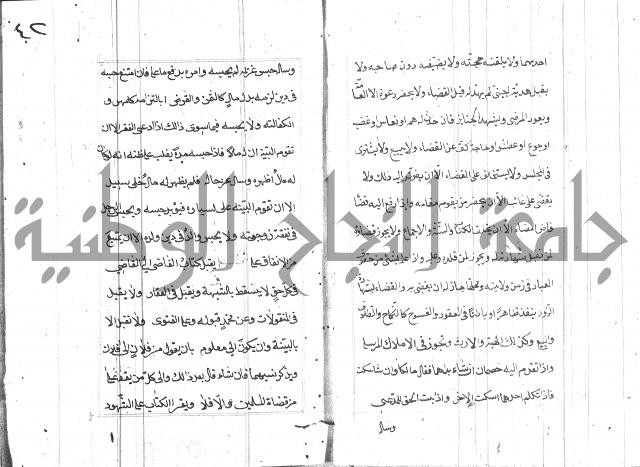 احدهما ولا يلقنه حجته ولا يضيفه دون صاحبه ولا
يقبل هدية اجنبي لم يهد له قبل القضاء ولا يحضر دعوة الا العامة
ويعود المرضى ويشهد الجنائز فان حدث له هم او نعاس او غضب
او جوع او عطش او حاجة كف عن القضاء ولا يبيع ولا يشترى
في المجلس ولا يستخلف على القضاء الا ان يفوض اليه ذلك ولا
يقضي على غائب الا ان يحضر من يقوم مقامه واذا رفع اليه قضاء
قاض امضاه الا ان يخالف الكتاب والسنة والاجماع ولا يجوز قضاؤه
لمن تقبل شهادته له ويجوز لمن قلده وعليه واذا علم بشئ من حقوق
العباد في زمن ولايته ومحلها جاز له ان يقضى به والقضاء بشهادة
الزور ينفذ ظاهرا وباطنا في العقود والفسوخ كالنكاح والطلاق
والبيع وكذلك الهبة والارث ويجوز في الاملاك المرسلة
واذا تقدم اليه خصمان ان شاء بدأهما فقال مالكما وان شاء سكت
فاذا تكلم احدهما اسكت الاخر واذا ثبت الحق للمدعي
وسأل
٤٢
وسأل حبس غريمه لم يحبسه وامره بدفع ما عليه فان امتنع حبسه
في دين لزمه بدل مال كالثمن والقرض او بالتزامه كالمهر و
الكفالة ولا يحبسه فيما سوى ذلك اذا ادعى الفقر الا ان
تقوم البينة ان له مالا فاذا حبسه مدة يغلب على ظنه انه لو كان
له مال اظهره وسأل عن حاله فلم يظهر له مال خلى سبيله
الا ان تقوم البينة على يساره فيؤبد حبسه ويحبس الرجل
في نفقة زوجته ولا يحبس والد في دين ولده الا ان امتنع
من الانفاق عليه يقبل كتاب القاضى الى القاضى
في كل حق لا يسقط بالشبهة ويقبل في العقار ولا يقبل
في المنقولات وعن محمد قبوله وعليه الفتوى ولا تقبل الا
بالبينة وان يكون الى معلوم بان يقول من فلان الى فلان
ويذكر نسبهما فان شاء قال بعد ذلك والى كل من يصل اليه
من قضاة المسلمين والا فلا ويقرأ الكتاب على الشهود
جامعة النجاح الوطنية